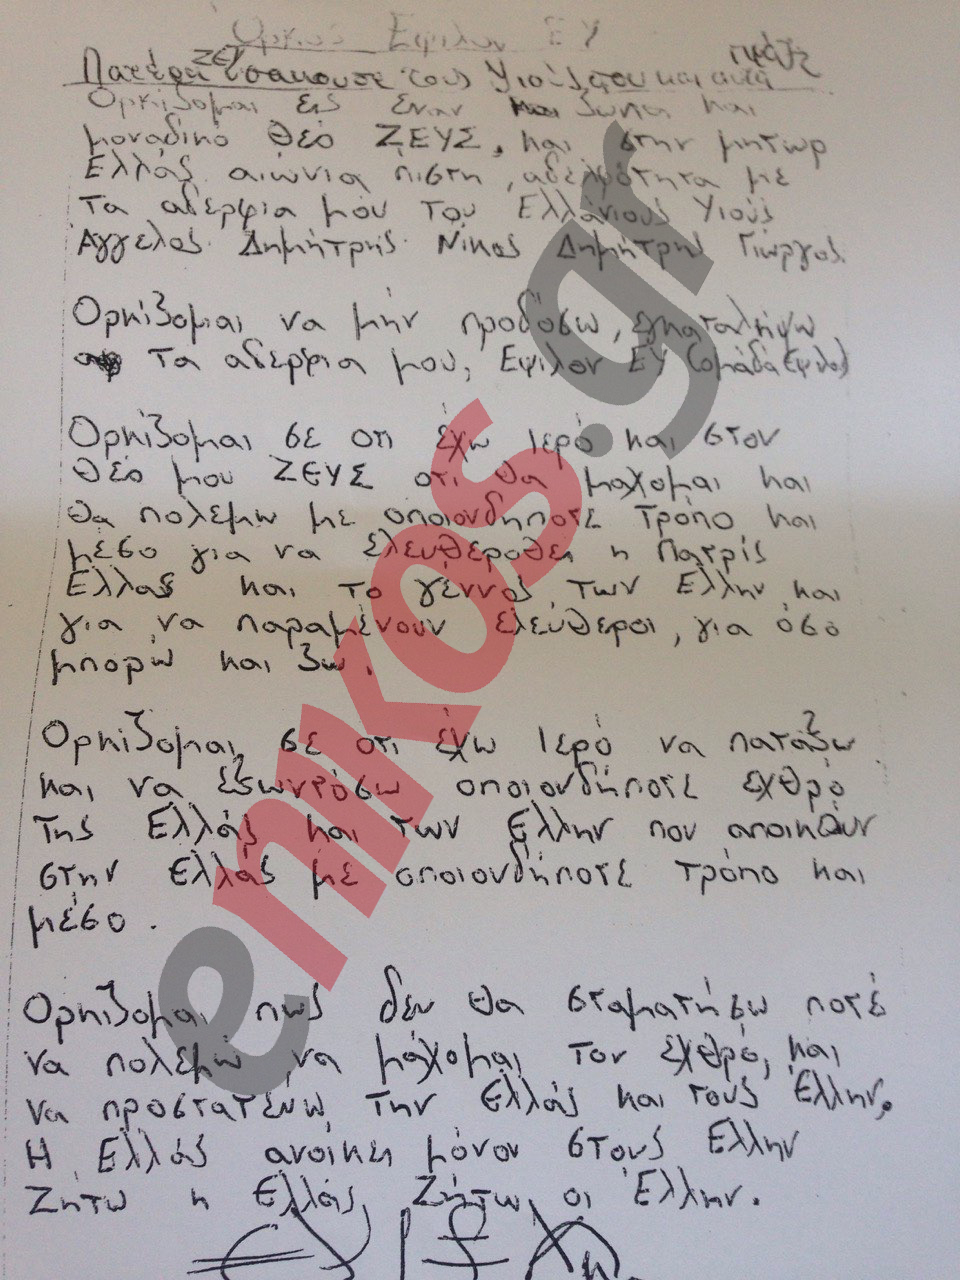 Ορκός Εψιλον ΕΥ
Πατέρα ΖΕΥ εισακουσε τους Υιούς σου και αυτή πράξε
Ορκίζομαι εις έναν και ζωντα και
μοναδικό Θεό ΖΕΥΣ, και στην μητωρ
Ελλάς αιώνια πιστη, αδελφότητα με
Τα αδερφια μου του Ελλάνιους Υιούς
Άγγελος Δημήτρης Νίκος Δημήτρης Γιωργος.
Ορκίζομαι να μήν προδόσω, εγκαταλήψω
Τα αδερφια μου, Εψιλον ΕΥ (ομάδα Εψιλον)
Ορκίζομαι σε οτι έχω Ιερό και στον
Θεό μου ΖΕΥΣ οτι θα μαχομαι και
θα πολεμω με οποιονδηποτε Τρόπο και
μέσο για να ελευθεροθει η Πατρίς
Ελλας και το γέννος των Ελλην και
για να παραμένουν ελευθεροι, για όσο
μπορώ και ζω.
Ορκίζομαι σε οτι έχω Ιερό να παταξω
και να εξωντόσω οποιονδήποτε εχθρό
της Ελλάς και των Ελλην που αποικούν
στην Ελλάς με οποιονδήποτε τρόπο και
μέσο.
Ορκίζομαι πως δεν θα σταματήσω ποτέ
να πολεμώ να μάχομαι τον εχθρό, και
να προστατεύω την Ελλάς και τους Έλλην.
Η Ελλάς ανοίκει μόνον στους Ελλην
Ζήτω η Ελλάς Ζήτω οι Έλλην.
enikos.gr